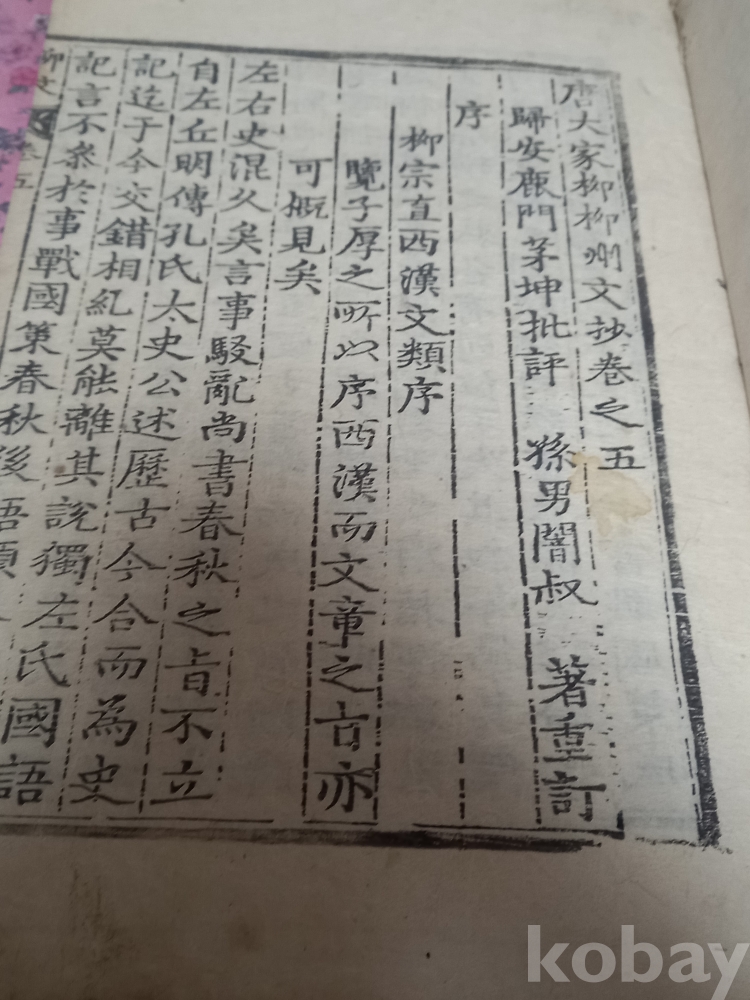 唐大家柳柳州文抄卷之五
歸安鹿門茅坤批評 孫男闇叔 著重訂
序
柳宗直西漢文類序
覽子厚之所以序西漢而文章之旨亦
可概見矣
左右史混久矣言事駁亂尚書春秋之旨不立
自左丘明傳孔氏太史公述歷古今合而為史
記迄于今交錯相糺莫能離其說獨左氏國語
記言不參於事戰國策春秋後語頗
柳文 卷五
kobay